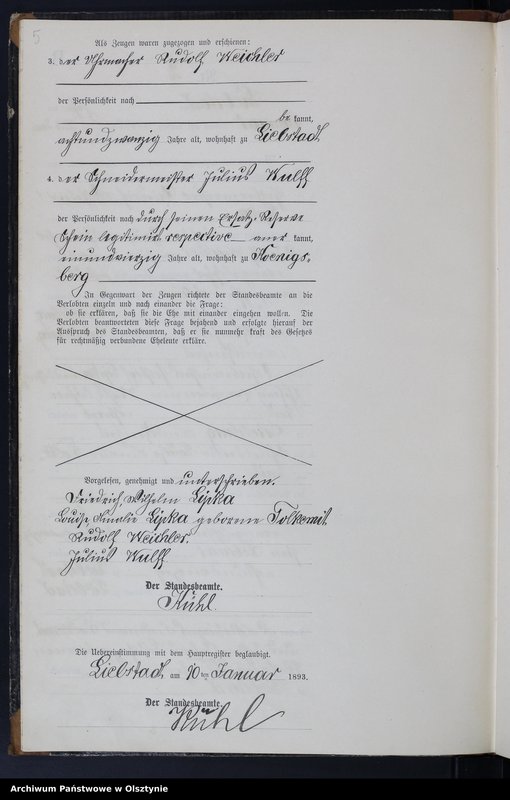 5
Als Zeugen waren zugezogen und erschienen:
3. der Uhrmacher Rudolf Weichler
der Persönlichkeit nach
be kannt,
achtundzwanzig Jahre alt, wohnhaft zu Liebstadt
4. der Schneidermeister Julius Wulff
der Persönlichkeit nach durch seinen Ersatz-Reserve
Schein legitimirt respective aner kannt,
einundvierzig Jahre alt, wohnhaft zu Koenigs-
berg
In Gegenwart der Zeugen richtete der Standesbeamte an die
Verlobten einzeln und nach einander die Frage:
ob sie erklären, daß sie die Ehe mit einander eingehen wollen. Die
Verlobten beantworteten diese Frage bejahend und erfolgte hierauf der
Ausspruch des Standesbeamten, daß er sie nunmehr kraft des Gesetzes
für rechtmäßig verbundene Eheleute erkläre.
Vorgelesen, genehmigt und unterschrieben.
Friedrich, Wilhelm Lipka
Louise Amalie Lipka geborene Tolkemit.
Rudolf Weichler.
Julius Wulff
Der Standesbeamte.
Kühl.
Die Uebereinstimmung mit dem Hauptregister beglaubigt.
Liebstadt, am 10 ten Januar 1893.
Der Standesbeamte.
Kühl
Archiwum Państwowe w Olsztynie